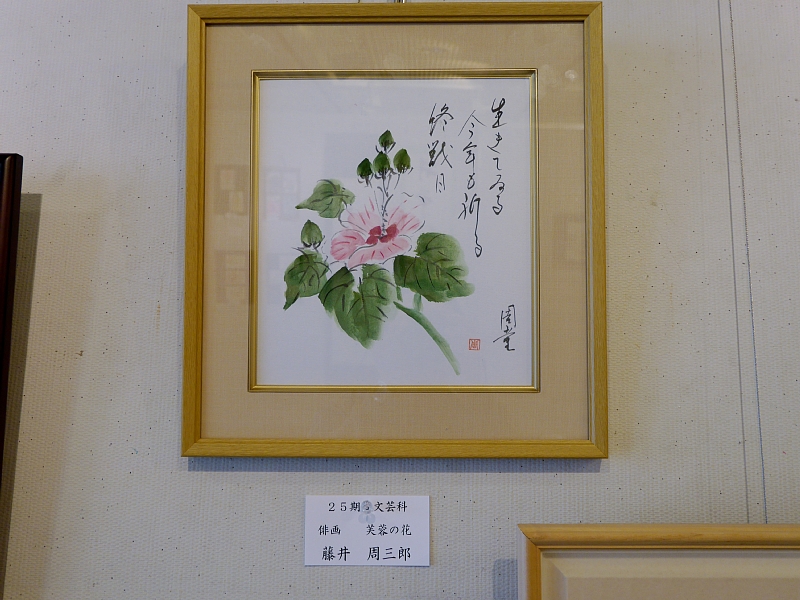 生きてゐる
今年も祈る
終戦日
周堂
25期 文芸科
俳画 芙蓉の花
藤井 周三郎